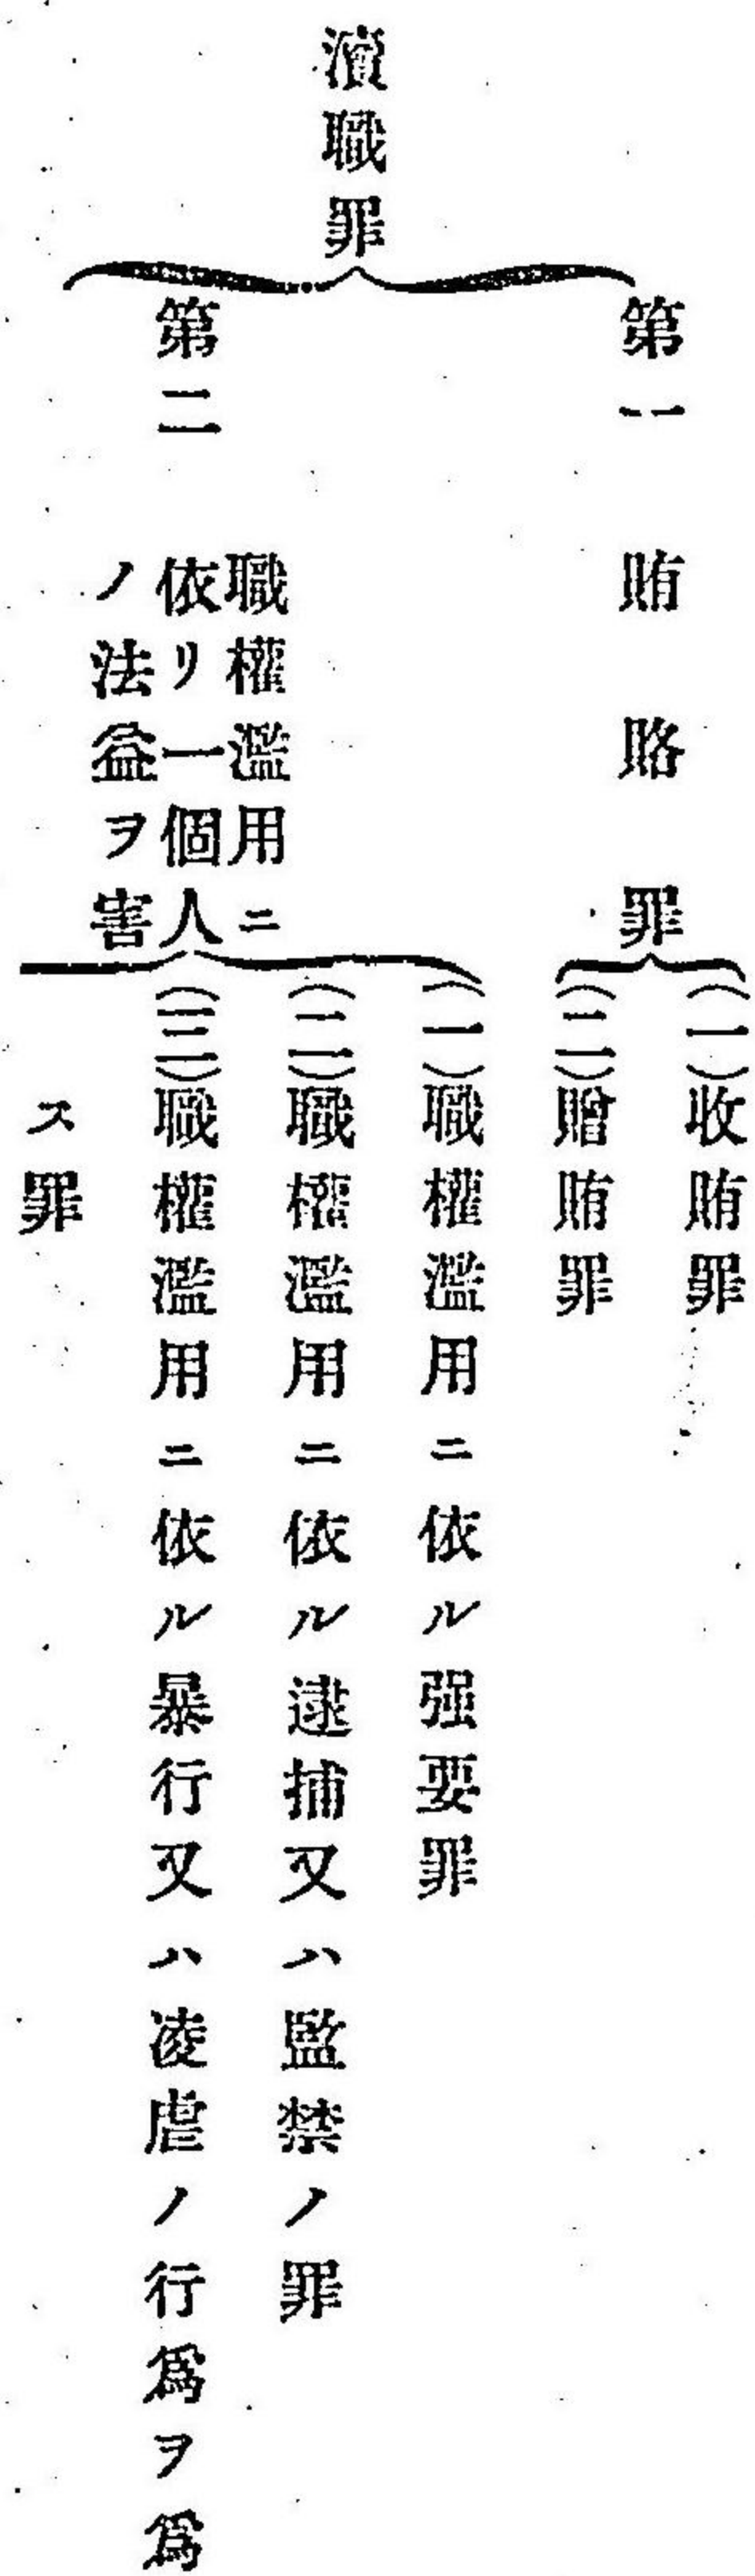 瀆職罪
第一 賄賂罪
(一)收賄罪
(二)贈賄罪
第二
職權濫用ニ
依リ一個人
ノ法益ヲ害
(一)職權濫用ニ依ル强要罪
(二)職權濫用ニ依ル逮捕又ハ監禁ノ罪
(三)職權濫用ニ依ル暴行又ハ凌虐ノ行爲ヲ爲
ス罪